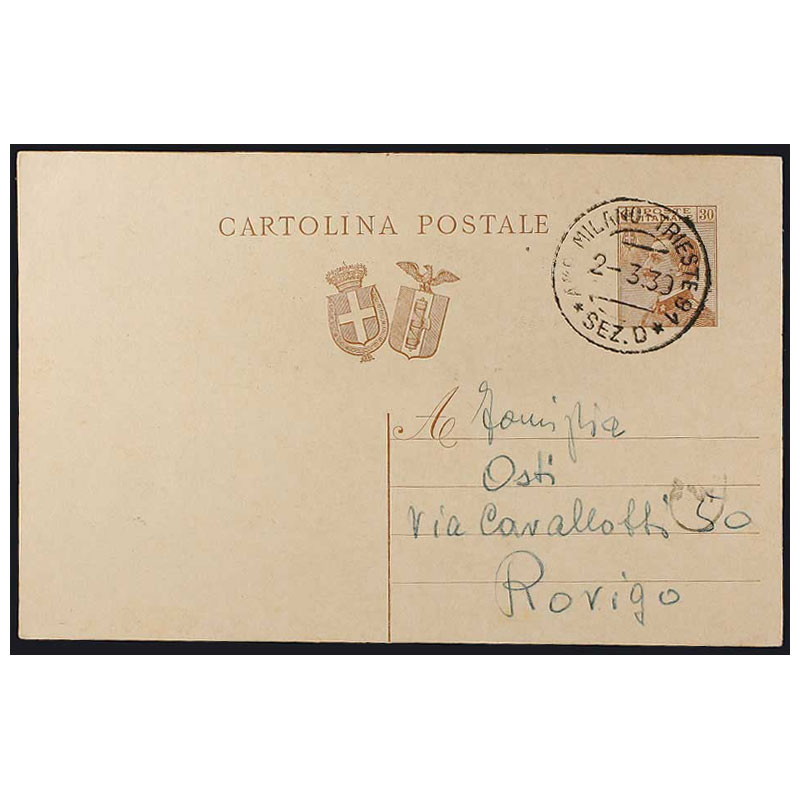 CARTOLINA POSTALE
POSTE
ITALIANE
30
AMB. MILANO-TRIESTE 91
2-3.30
* SEZ. D *
A Famiglia
Osti
Via Cavallotti 50
Rovigo